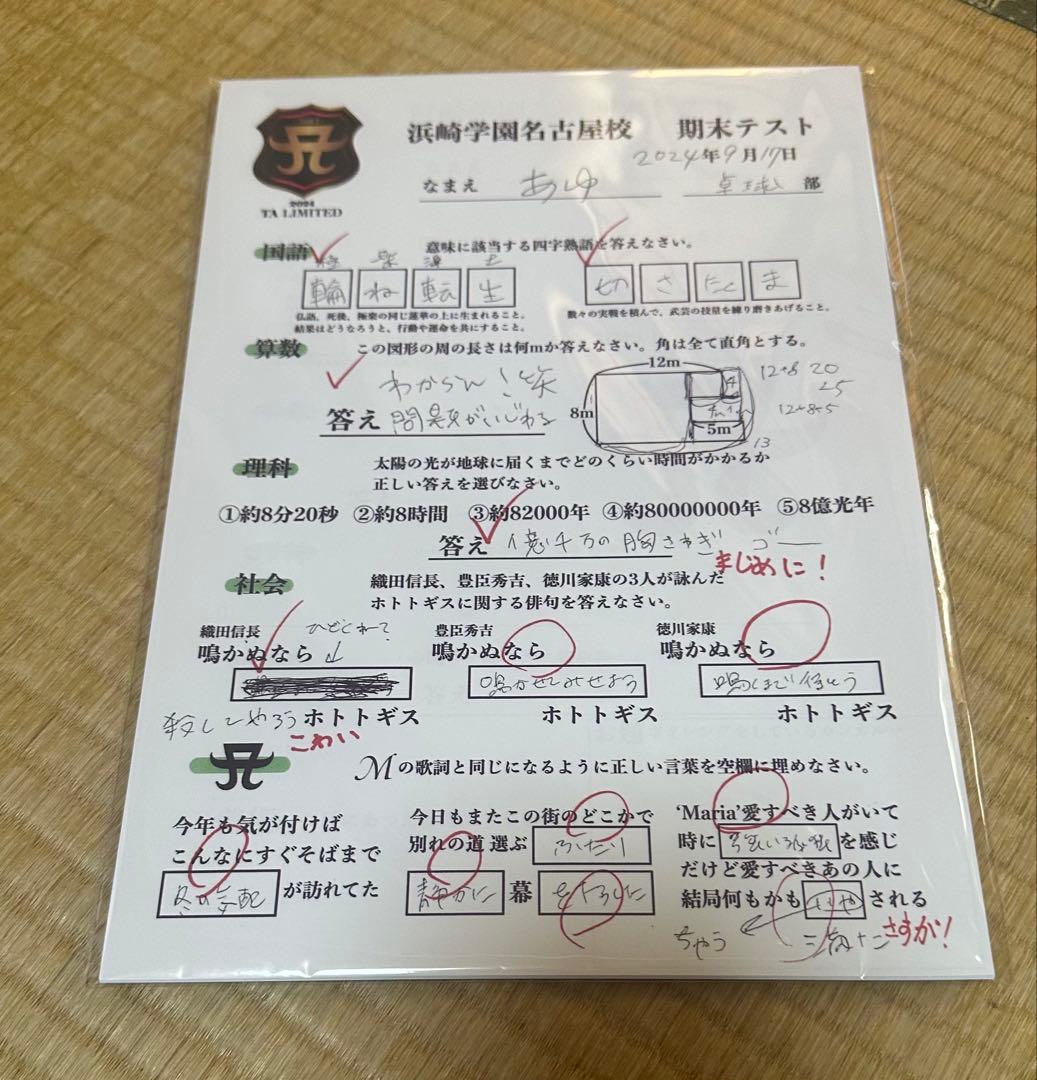 浜崎学園名古屋校 期末テスト
2024年9月17日
なまえ あゆ 卓球 部
2024
TA LIMITED
国語 意味に該当する四字熟語を答えなさい。
輪 ね 転 生
切 さ た く ま
仏語。死後、極楽の同じ蓮華の上に生まれること。
結果はどうなろうと、行動や運命を共にすること。
数々の実戦を積んで、武芸の技量を練り磨きあげること。
算数 この図形の周の長さは何mか答えなさい。角は全て直角とする。
12m
8m
5m
4
12+8 20
25
12+8+5
13
わからん!笑
答え 問題がいじわる
理科 太陽の光が地球に届くまでどのくらい時間がかかるか
正しい答えを選びなさい。
①約8分20秒 ②約8時間 ③約82000年 ④約80000000年 ⑤8億光年
答え 億千万の胸さわぎ ゴー
まじめに!
社会 織田信長、豊臣秀吉、徳川家康の3人が詠んだ
ホトトギスに関する俳句を答えなさい。
織田信長 ひどくねー?
鳴かぬなら
殺してやろう ホトトギス
こわい
豊臣秀吉
鳴かぬなら
鳴かせてみせよう
ホトトギス
徳川家康
鳴かぬなら
鳴くまで待とう
ホトトギス
Mの歌詞と同じになるように正しい言葉を空欄に埋めなさい。
今年も気が付けば
こんなにすぐそばまで
冬の気配 が訪れてた
今日もまたこの街のどこかで
別れの道選ぶ ふたり
静かに 幕 をおろした
'Maria'愛すべき人がいて
時に を感じ
だけど愛すべきあの人に
結局何もかも いや される
ちゃう
さすが!